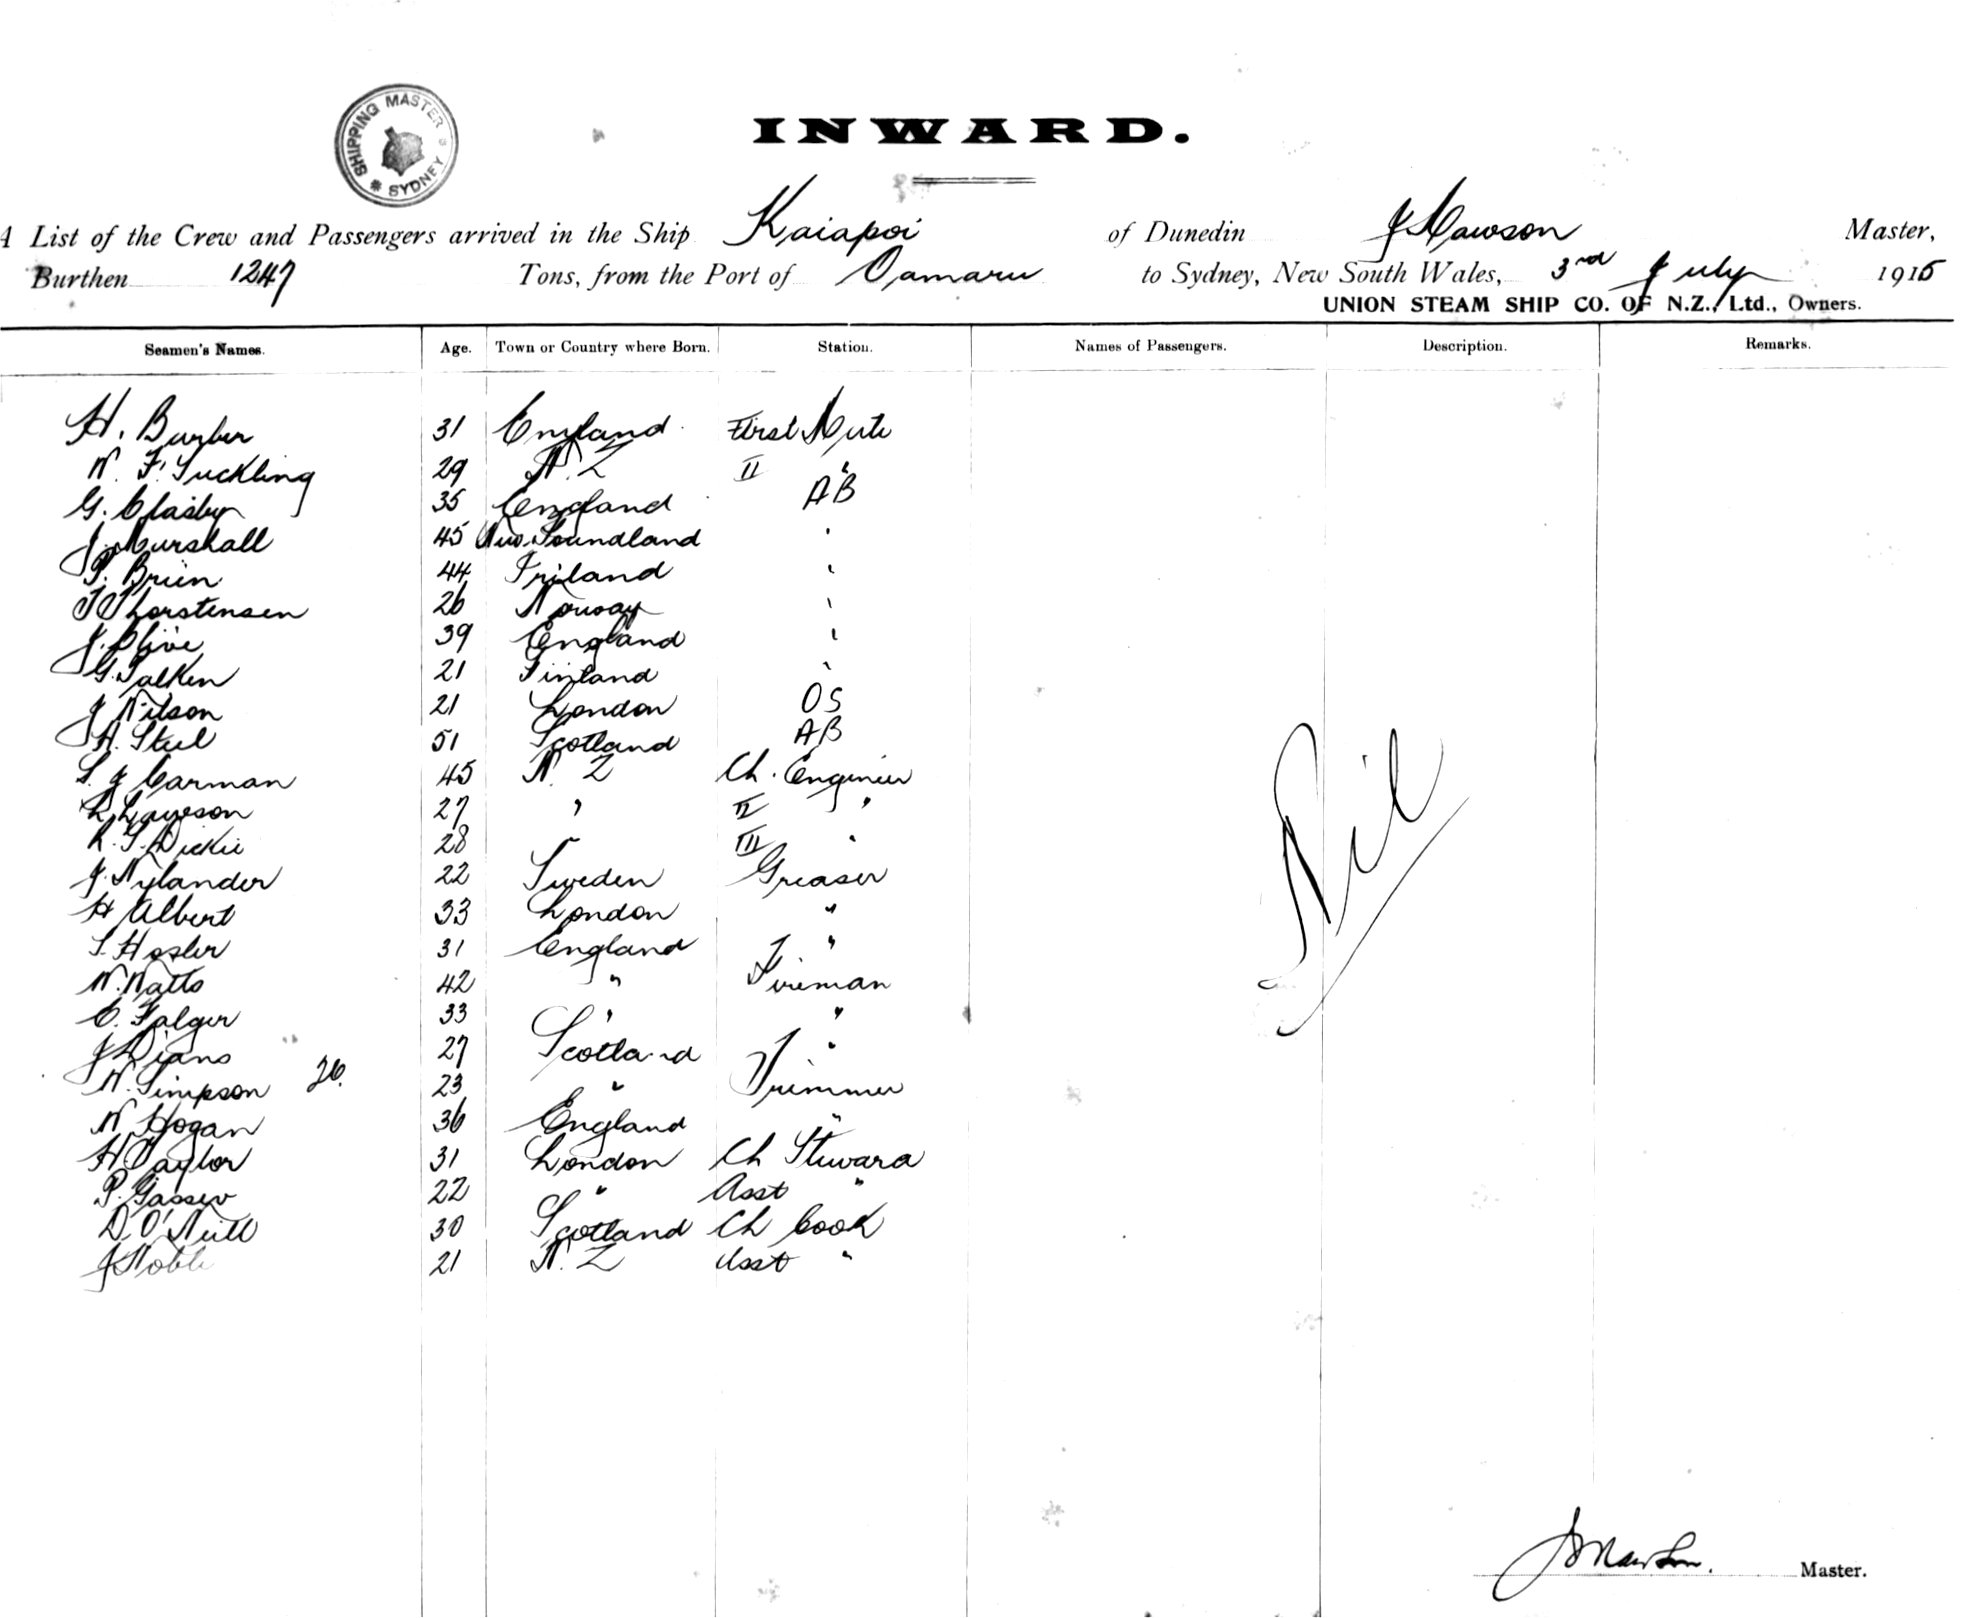 SHIPPING MASTER
* SYDNEY *
INWARD.
A List of the Crew and Passengers arrived in the Ship Kaiapoi of Dunedin J Dawson Master,
Burthen 1247 Tons, from the Port of Oamaru to Sydney, New South Wales, 3rd July 1915
UNION STEAM SHIP CO. OF N.Z., Ltd., Owners.
Seamen's Names. Age. Town or Country where Born. Station. Names of Passengers. Description. Remarks.
H. Burber 31 England First Mate
W. F. Suckling 29 N.Z II "
G. Clasby 35 England AB
J. Marshall 45 New Foundland '
P. Brien 44 Ireland '
T Thorstensen 26 Norway '
J. Olive 39 England '
G. Salken 21 Finland '
J Nilson 21 London OS
A. Steel 51 Scotland AB
S. J Carman 45 N. Z Ch. Engineer
L Lawson 27 " II "
R. S. Dickie 28 III "
J. Nylander 22 Sweden Greaser
H Albert 33 London "
S. Hosler 31 England "
W. Watts 42 " Fireman
E. Falger 33 " "
J 27 Scotland "
W. Simpson 26. 23 " Trimmer
W Hogan 36 England "
H Taylor 31 London Ch Steward
P. 22 " Asst "
D. O'Neill 30 Scotland Ch Cook
J Noble 21 N. Z Asst "
Nil
J Dawson. Master.